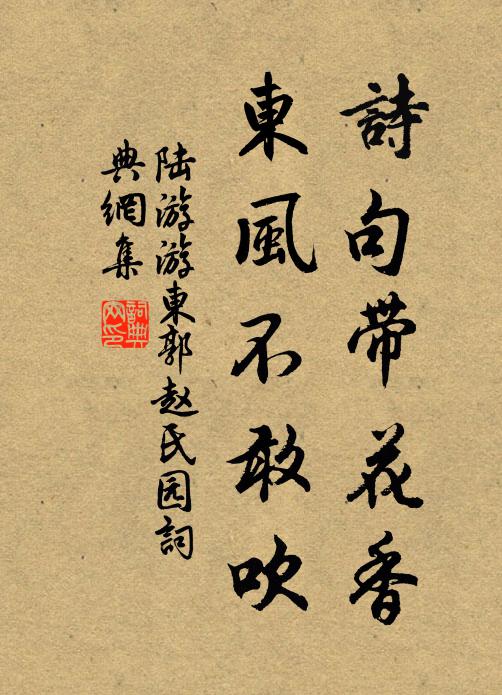 詩句带花香
東風不敢吹
陆游游東郭赵氏园詞
典網集
詞典
网印